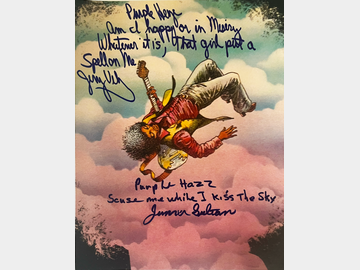 Purple Haze
Am I happy or in Misery
Whatever it is, That girl put a
Spell on Me
Purple Haze
Scuse me while I kiss The Sky
Juma Sultan